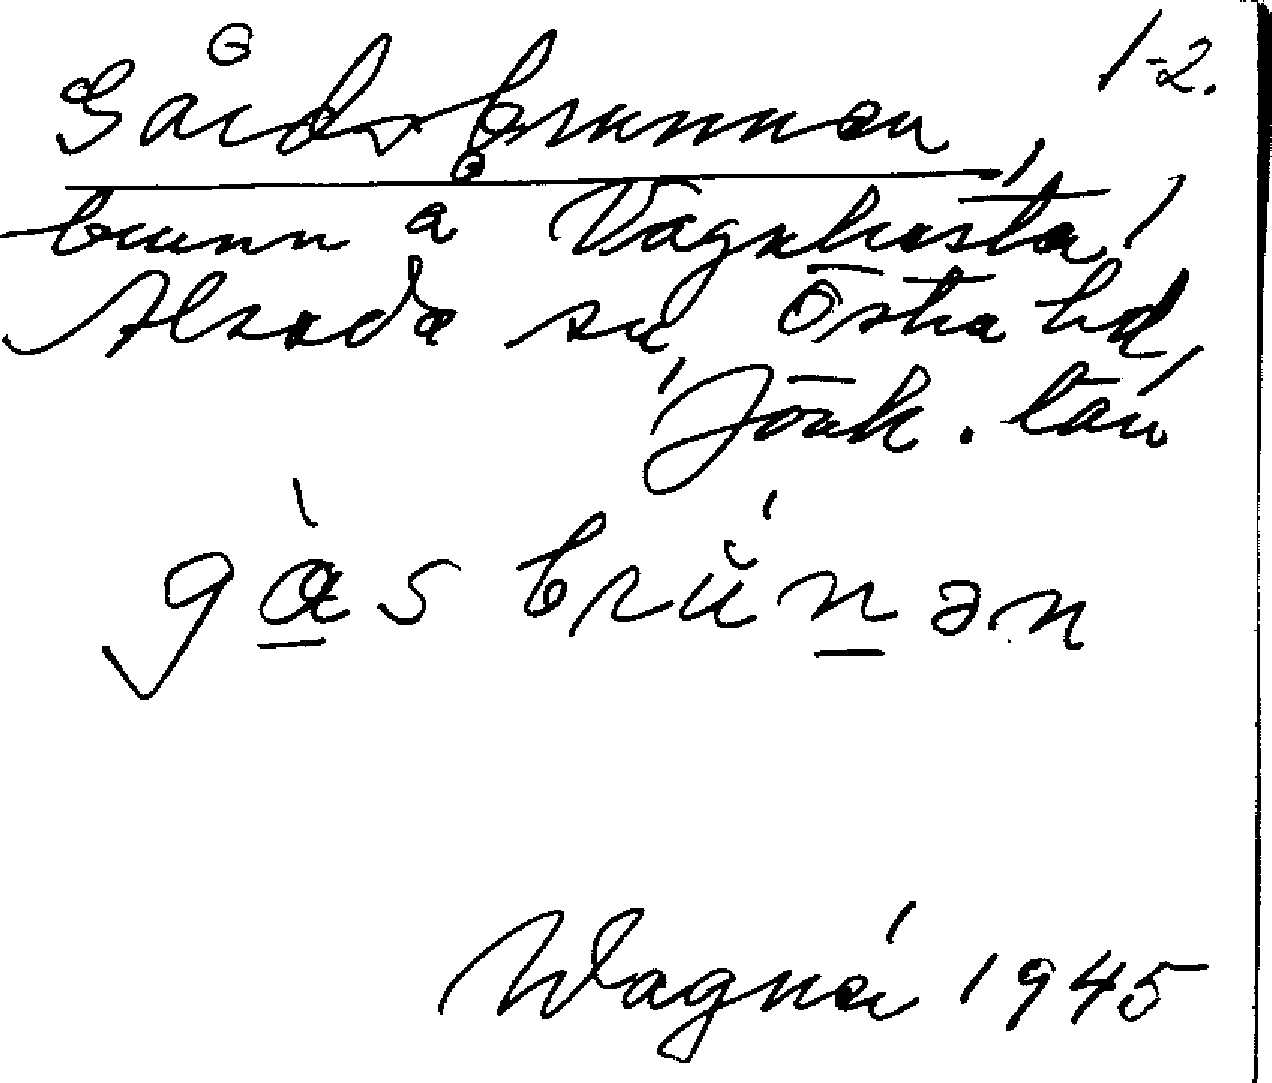 1-2.
Gårdsbrunnen,
brunn å Vagnhesta,
Alseda sn, Östra hd,
Jönk. län
gàsbrŭnən
Wagnér 1945